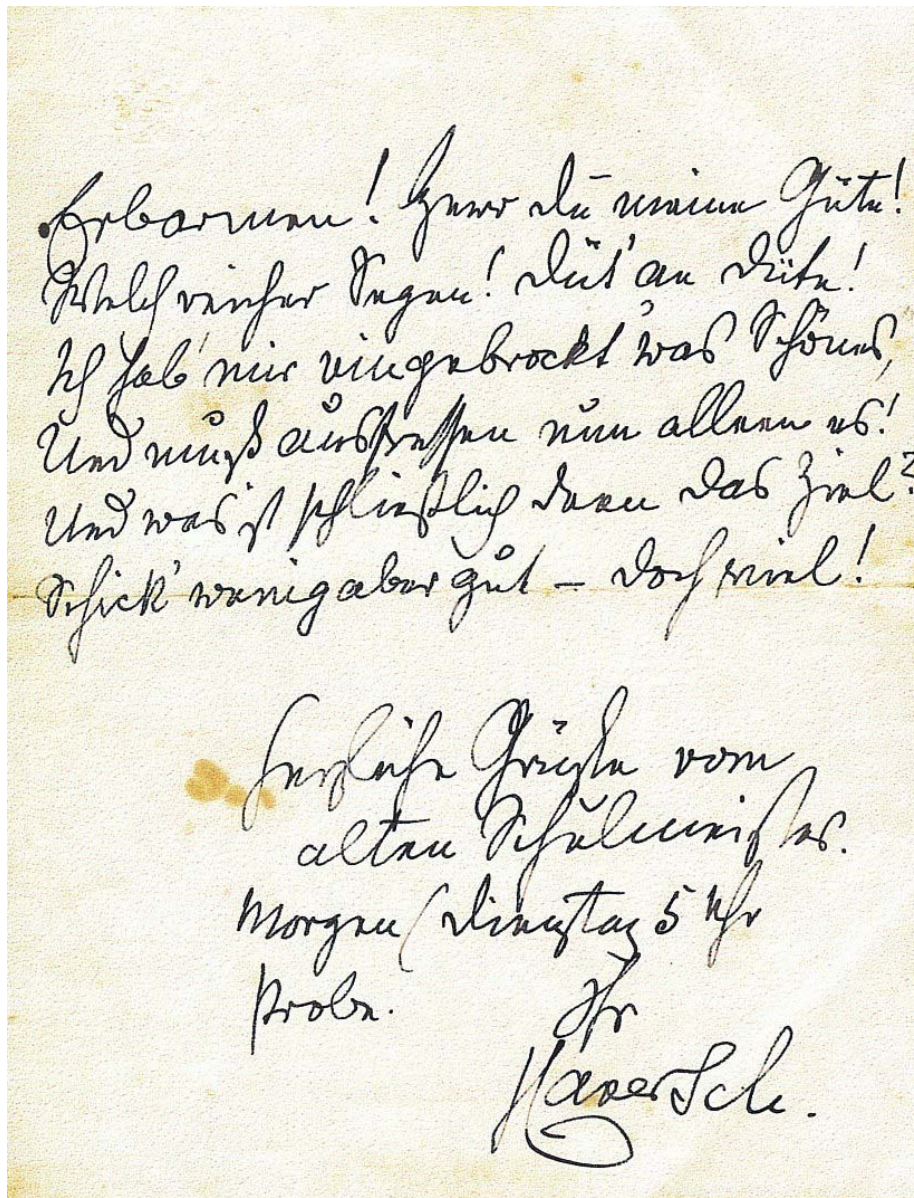 Erbarmen! Herr du meine Güte!
Welch reicher Segen! Düt' an Düte!
Ich hab' mir eingebrockt was Schönes,
Und muß ausfressen nun alleen es!
Und was ist schließlich denn das Ziel?
Schick' wenig aber gut – doch viel!
Herzliche Grüße vom
alten Schulmeister.
Morgen (Dienstag 5 Uhr
Probe. Ihr
Xaver Sch.